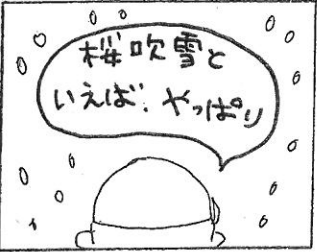 桜吹雪と
いえば、やっぱり